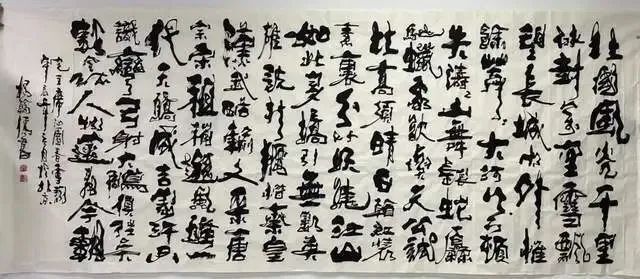 北國風光千里
冰封萬里雪飄
望長城內外惟
餘莽莽大河上下頓
失滔滔山舞銀蛇原
馳蠟象欲與天公試
比高須晴日看紅裝
素裹分外妖嬈江山
如此多嬌引無數英
雄競折腰惜秦皇
漢武略輸文采唐
宗宋祖稍遜風騷一
代天驕成吉思汗只
識彎弓射大雕俱往矣
數風流人物還看今朝
毛主席沁園春雪詞
於北京